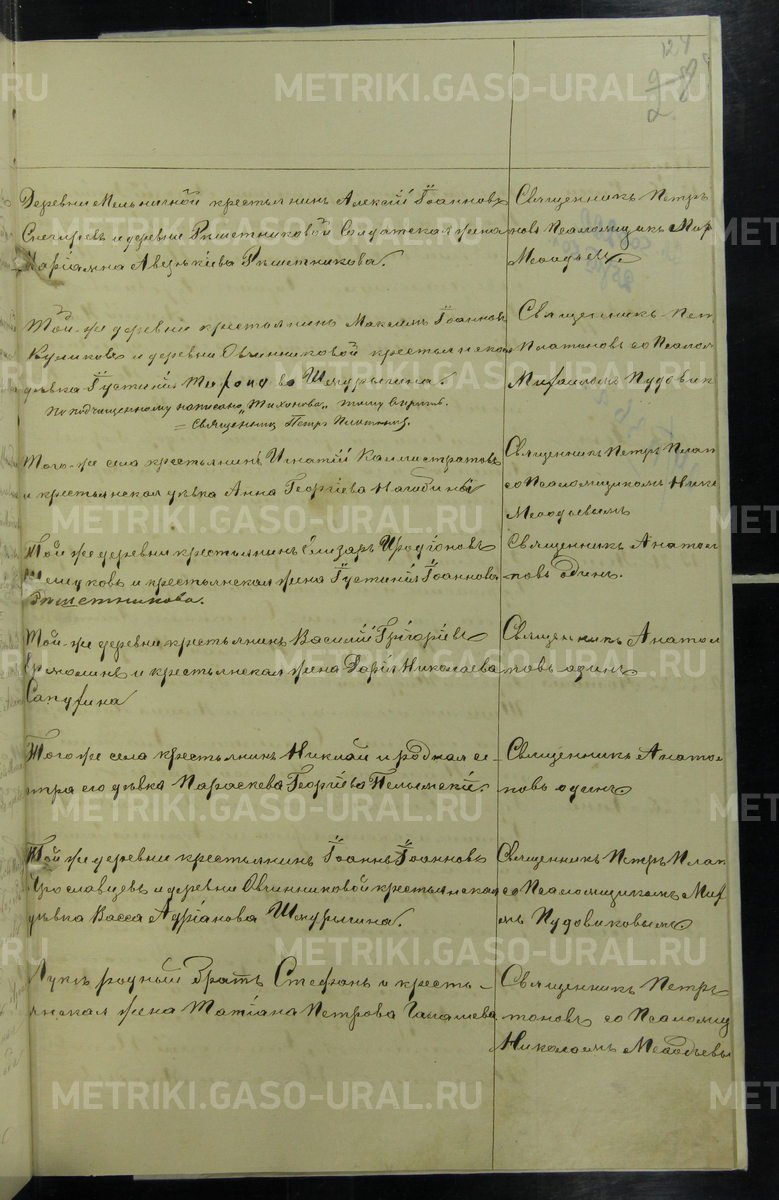 124
Деревни Мельничной крестьянинъ Алексій Іоанновъ
Снегиревъ и деревни Рѣшетниковой Солдатская жена
Маріамна Аверькіева Рѣшетникова.
Священникъ Петръ
новъ Псаломщикъ
Меѳодьевъ
Той-же деревни крестьянинъ Максимъ Іоанновъ
Куликовъ и деревни Овчинниковой крестьянская
дѣвка Іустинія Шмурыгина.
По подчищенному написано „Тихонова" тому вѣрить.
= Священник Петръ Платонов.
Священникъ Пет
Платоновъ со Псалом
Михаиломъ Пудовик
Того-же села крестьянинъ Игнатій Каллистратовъ
и крестьянская дѣвка Анна Георгіева
Священникъ Петръ Плат
со Псаломщикомъ Нико
Меѳодьевымъ
Той же деревни крестьянинъ Елизаръ Иродіоновъ
и крестьянская жена Іустинія Іоаннова
Рѣшетникова.
Священникъ Анатол
повъ одинъ.
Той-же деревни крестьянинъ Василій Григоріевъ
Ермолинъ и крестьянская жена Дарія Николаева
Сапугина
Священникъ Анатол
повъ одинъ
Того же села крестьянинъ Николай и родная се-
стра его дѣвка Параскева Георгіева Пелымскіе.
Священникъ Анатол
повъ одинъ
Той же деревни крестьянинъ Іоаннъ Іоанновъ
Ярославцевъ и деревни Овчинниковой крестьянская
дѣвка Васса Адріанова Шмурыгина.
Священникъ Петръ Плат
со Псаломщикомъ Мих
мъ Пудовиковымъ
родный братъ Стефанъ и кресть-
янская жена Татіана Петрова
Священникъ Петръ
тоновъ со Псаломщ
Николаемъ Меѳодьевы
METRIKI.GASO-URAL.RU